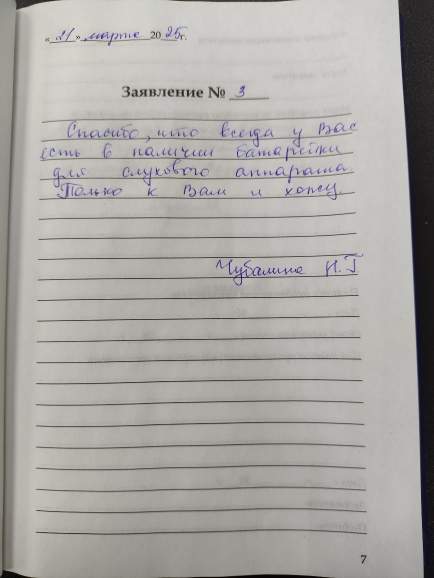 « 21 » марта 20 25г.
Заявление № 3
Спасибо, что всегда у Вас
есть в наличии батарейки
для слухового аппарата.
Только к Вам и хожу.
Чубалина Н.Г
7